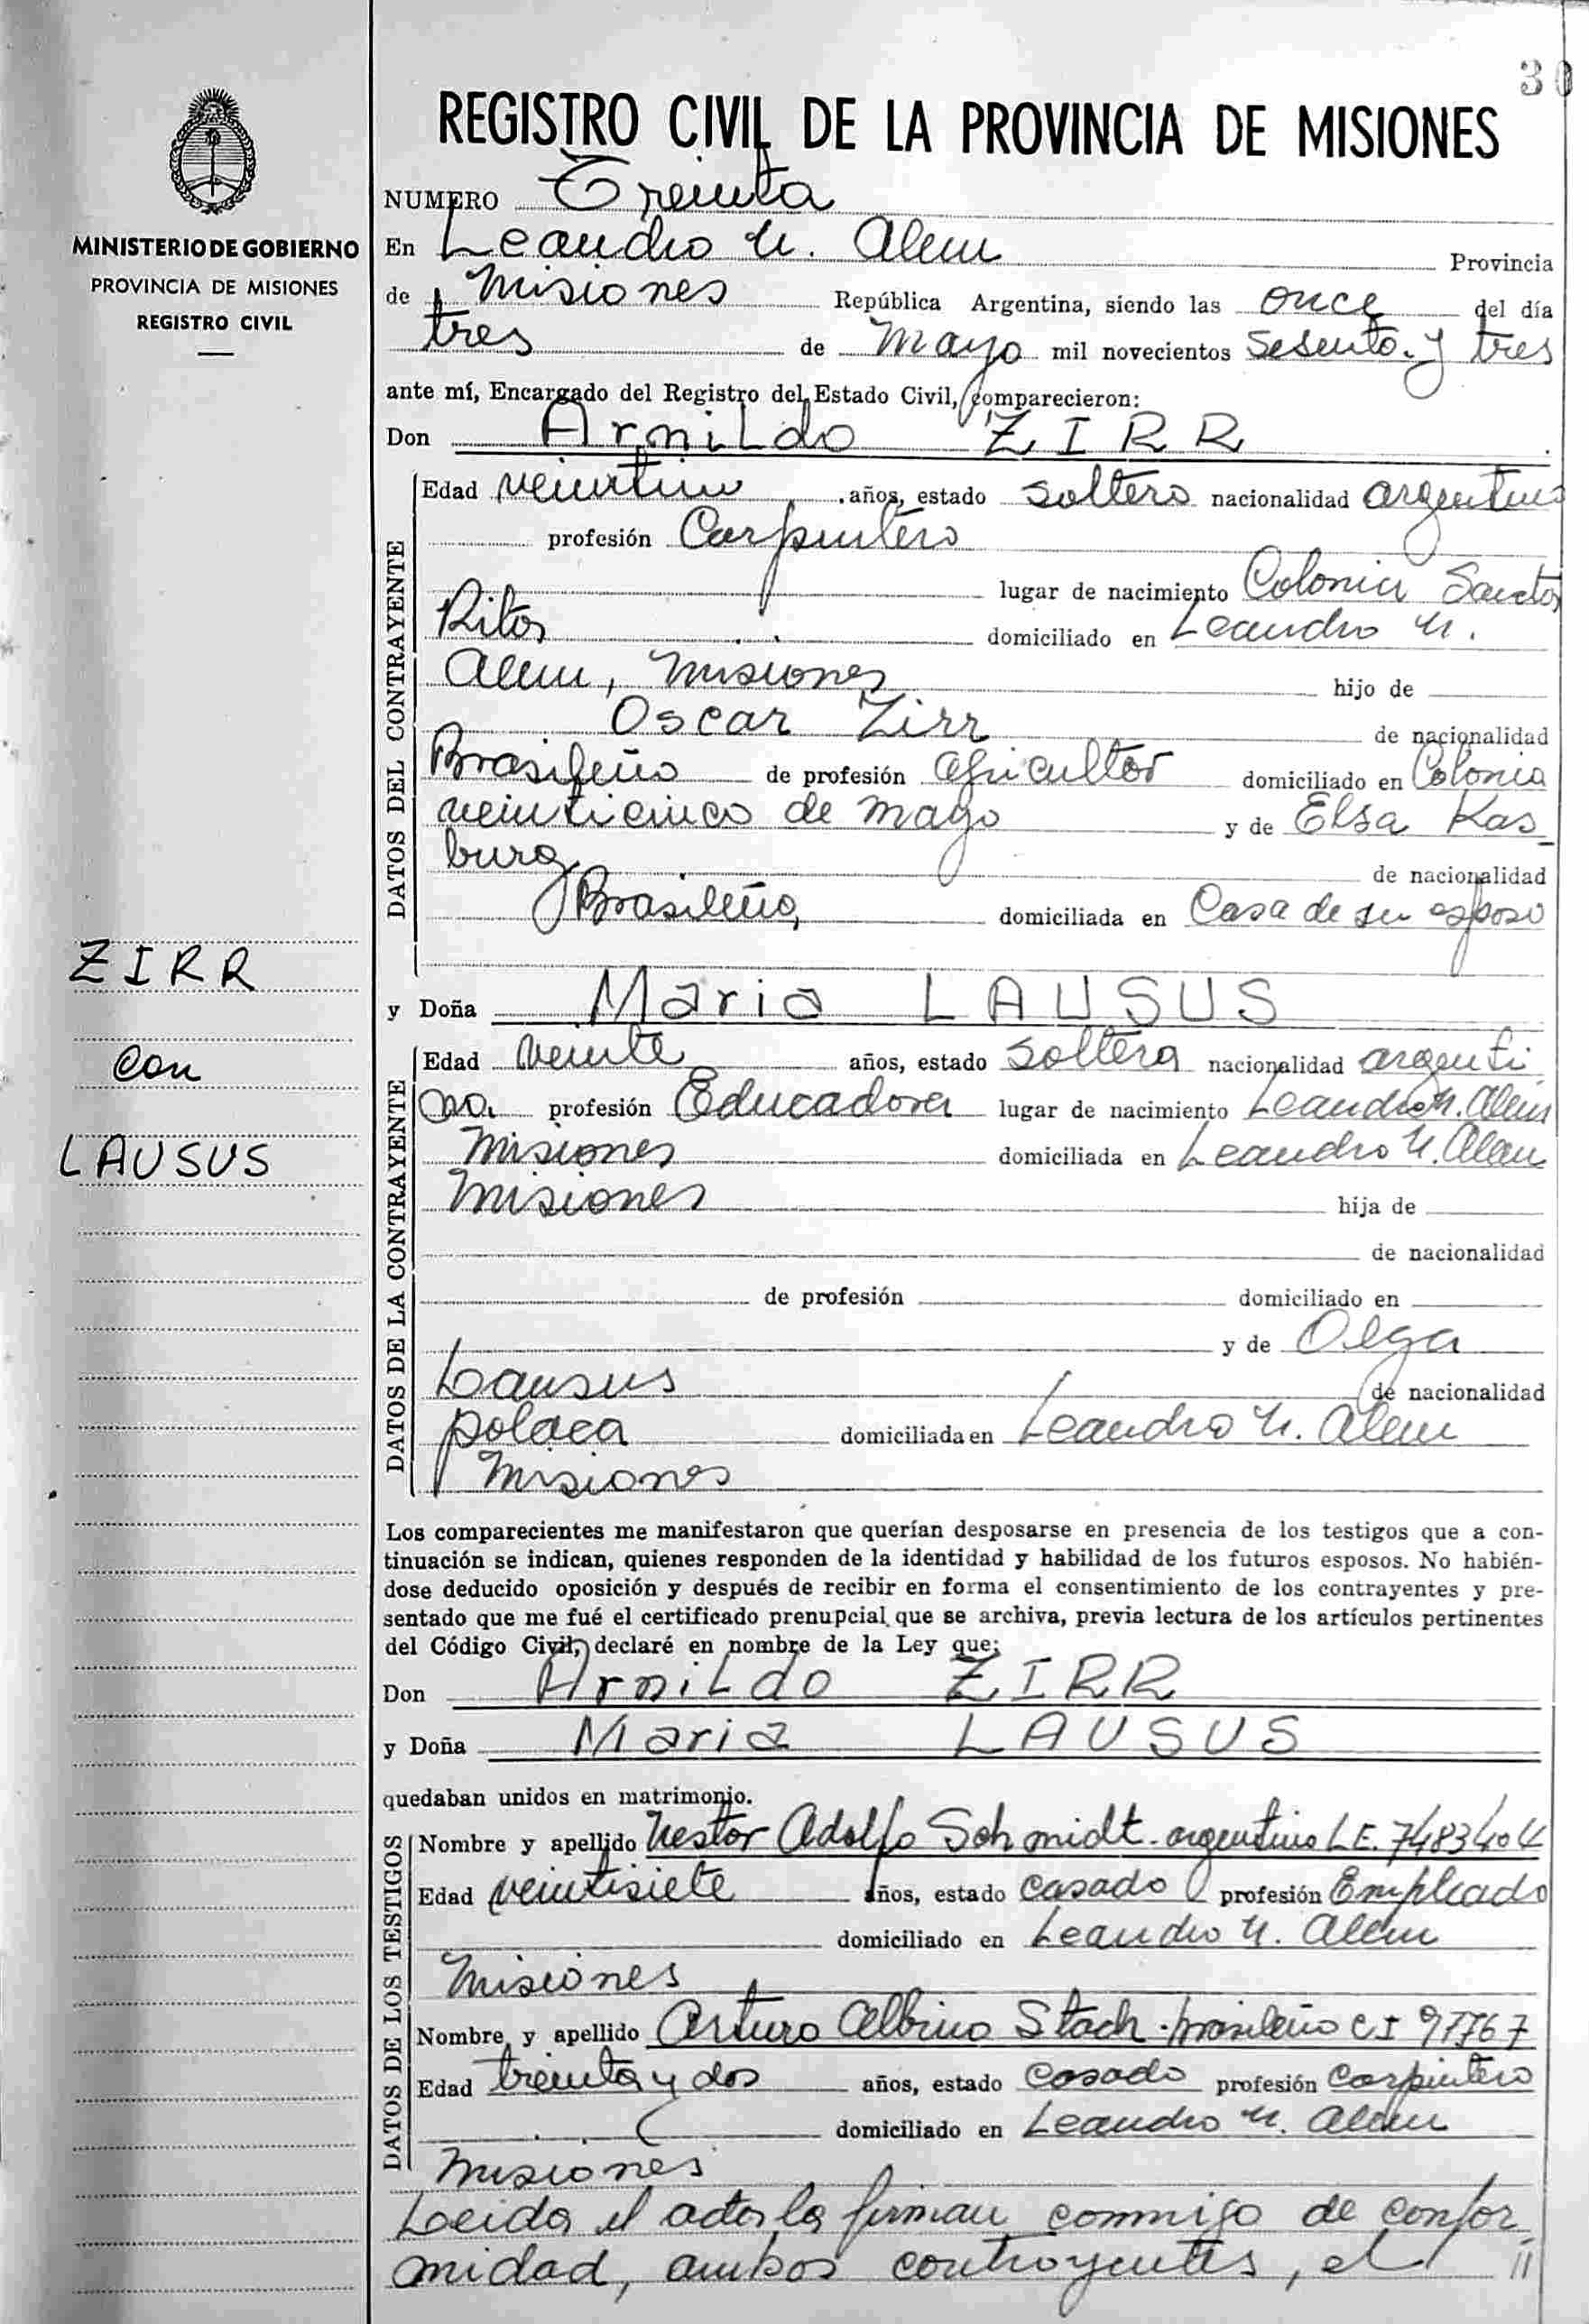 30
REGISTRO CIVIL DE LA PROVINCIA DE MISIONES
MINISTERIO DE GOBIERNO
PROVINCIA DE MISIONES
REGISTRO CIVIL
NUMERO Treinta
En Leandro N. Alem Provincia
de Misiones República Argentina, siendo las once del día
tres de Mayo mil novecientos Sesenta y tres
ante mí, Encargado del Registro del Estado Civil, comparecieron:
Don Arnildo ZIRR
DATOS DEL CONTRAYENTE
Edad veintiun años, estado soltero nacionalidad argentino
profesión Carpintero
lugar de nacimiento Colonia Santa
Rita domiciliado en Leandro N.
Alem, Misiones hijo de
Oscar Zirr de nacionalidad
Brasileño de profesión agricultor domiciliado en Colonia
veinticinco de mayo y de Elsa Kas
burg de nacionalidad
Brasileña domiciliada en Casa de su esposo
ZIRR
con
LAUSUS
y Doña Maria LAUSUS
DATOS DE LA CONTRAYENTE
Edad veinte años, estado soltera nacionalidad argenti
na profesión Educadora lugar de nacimiento Leandro N. Alem
Misiones domiciliada en Leandro N. Alem
Misiones hija de
de nacionalidad
de profesión domiciliado en
y de Olga
Lausus de nacionalidad
polaca domiciliada en Leandro N. Alem
Misiones
Los comparecientes me manifestaron que querían desposarse en presencia de los testigos que a con-
tinuación se indican, quienes responden de la identidad y habilidad de los futuros esposos. No habién-
dose deducido oposición y después de recibir en forma el consentimiento de los contrayentes y pre-
sentado que me fué el certificado prenupcial que se archiva, previa lectura de los artículos pertinentes
del Código Civil, declaré en nombre de la Ley que:
Don Arnildo ZIRR
y Doña Maria LAUSUS
quedaban unidos en matrimonio.
DATOS DE LOS TESTIGOS
Nombre y apellido Nestor Adolfo Schmidt - argentino L.E. 7483404
Edad veintisiete años, estado casado profesión Empleado
domiciliado en Leandro N. Alem
Misiones
Nombre y apellido Arturo Albino Stach - brasileño CI 97767
Edad treinta y dos años, estado casado profesión Carpintero
domiciliado en Leandro N. Alem
Misiones
Leida el acta la firman conmigo de confor
midad, ambos contrayentes, el //